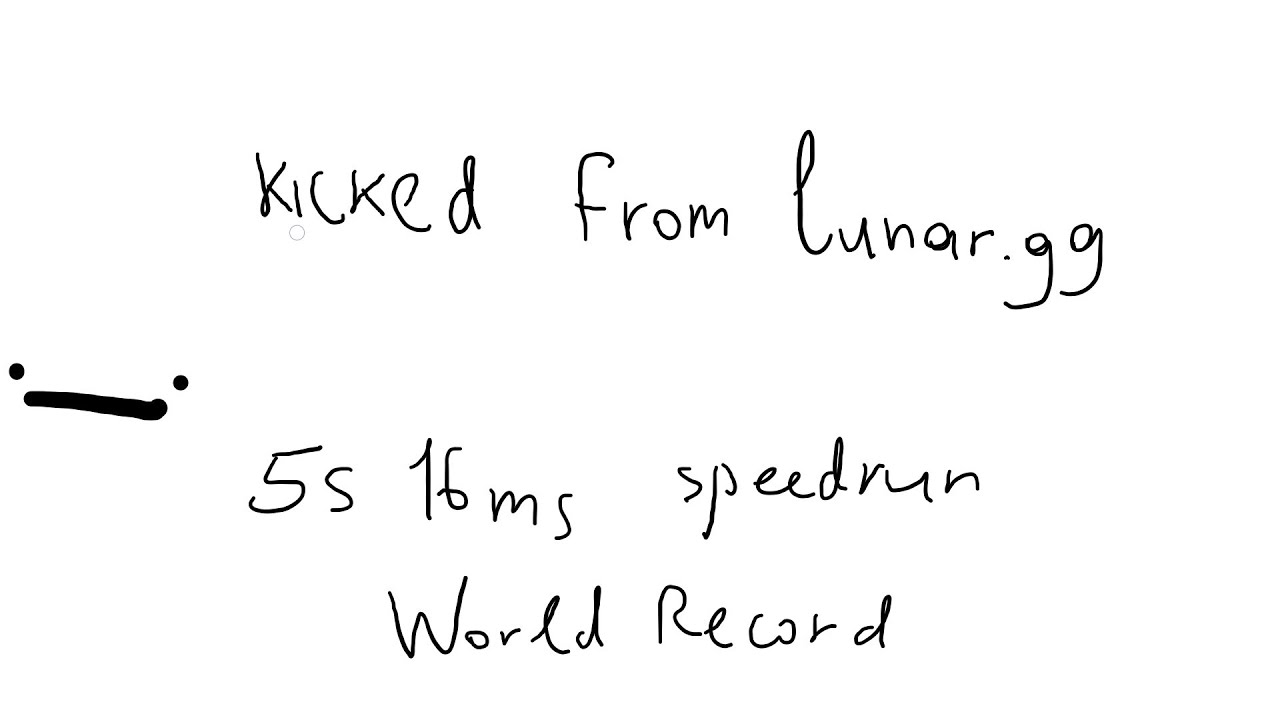 kicked from lunar.gg
5s 16ms speedrun
World Record